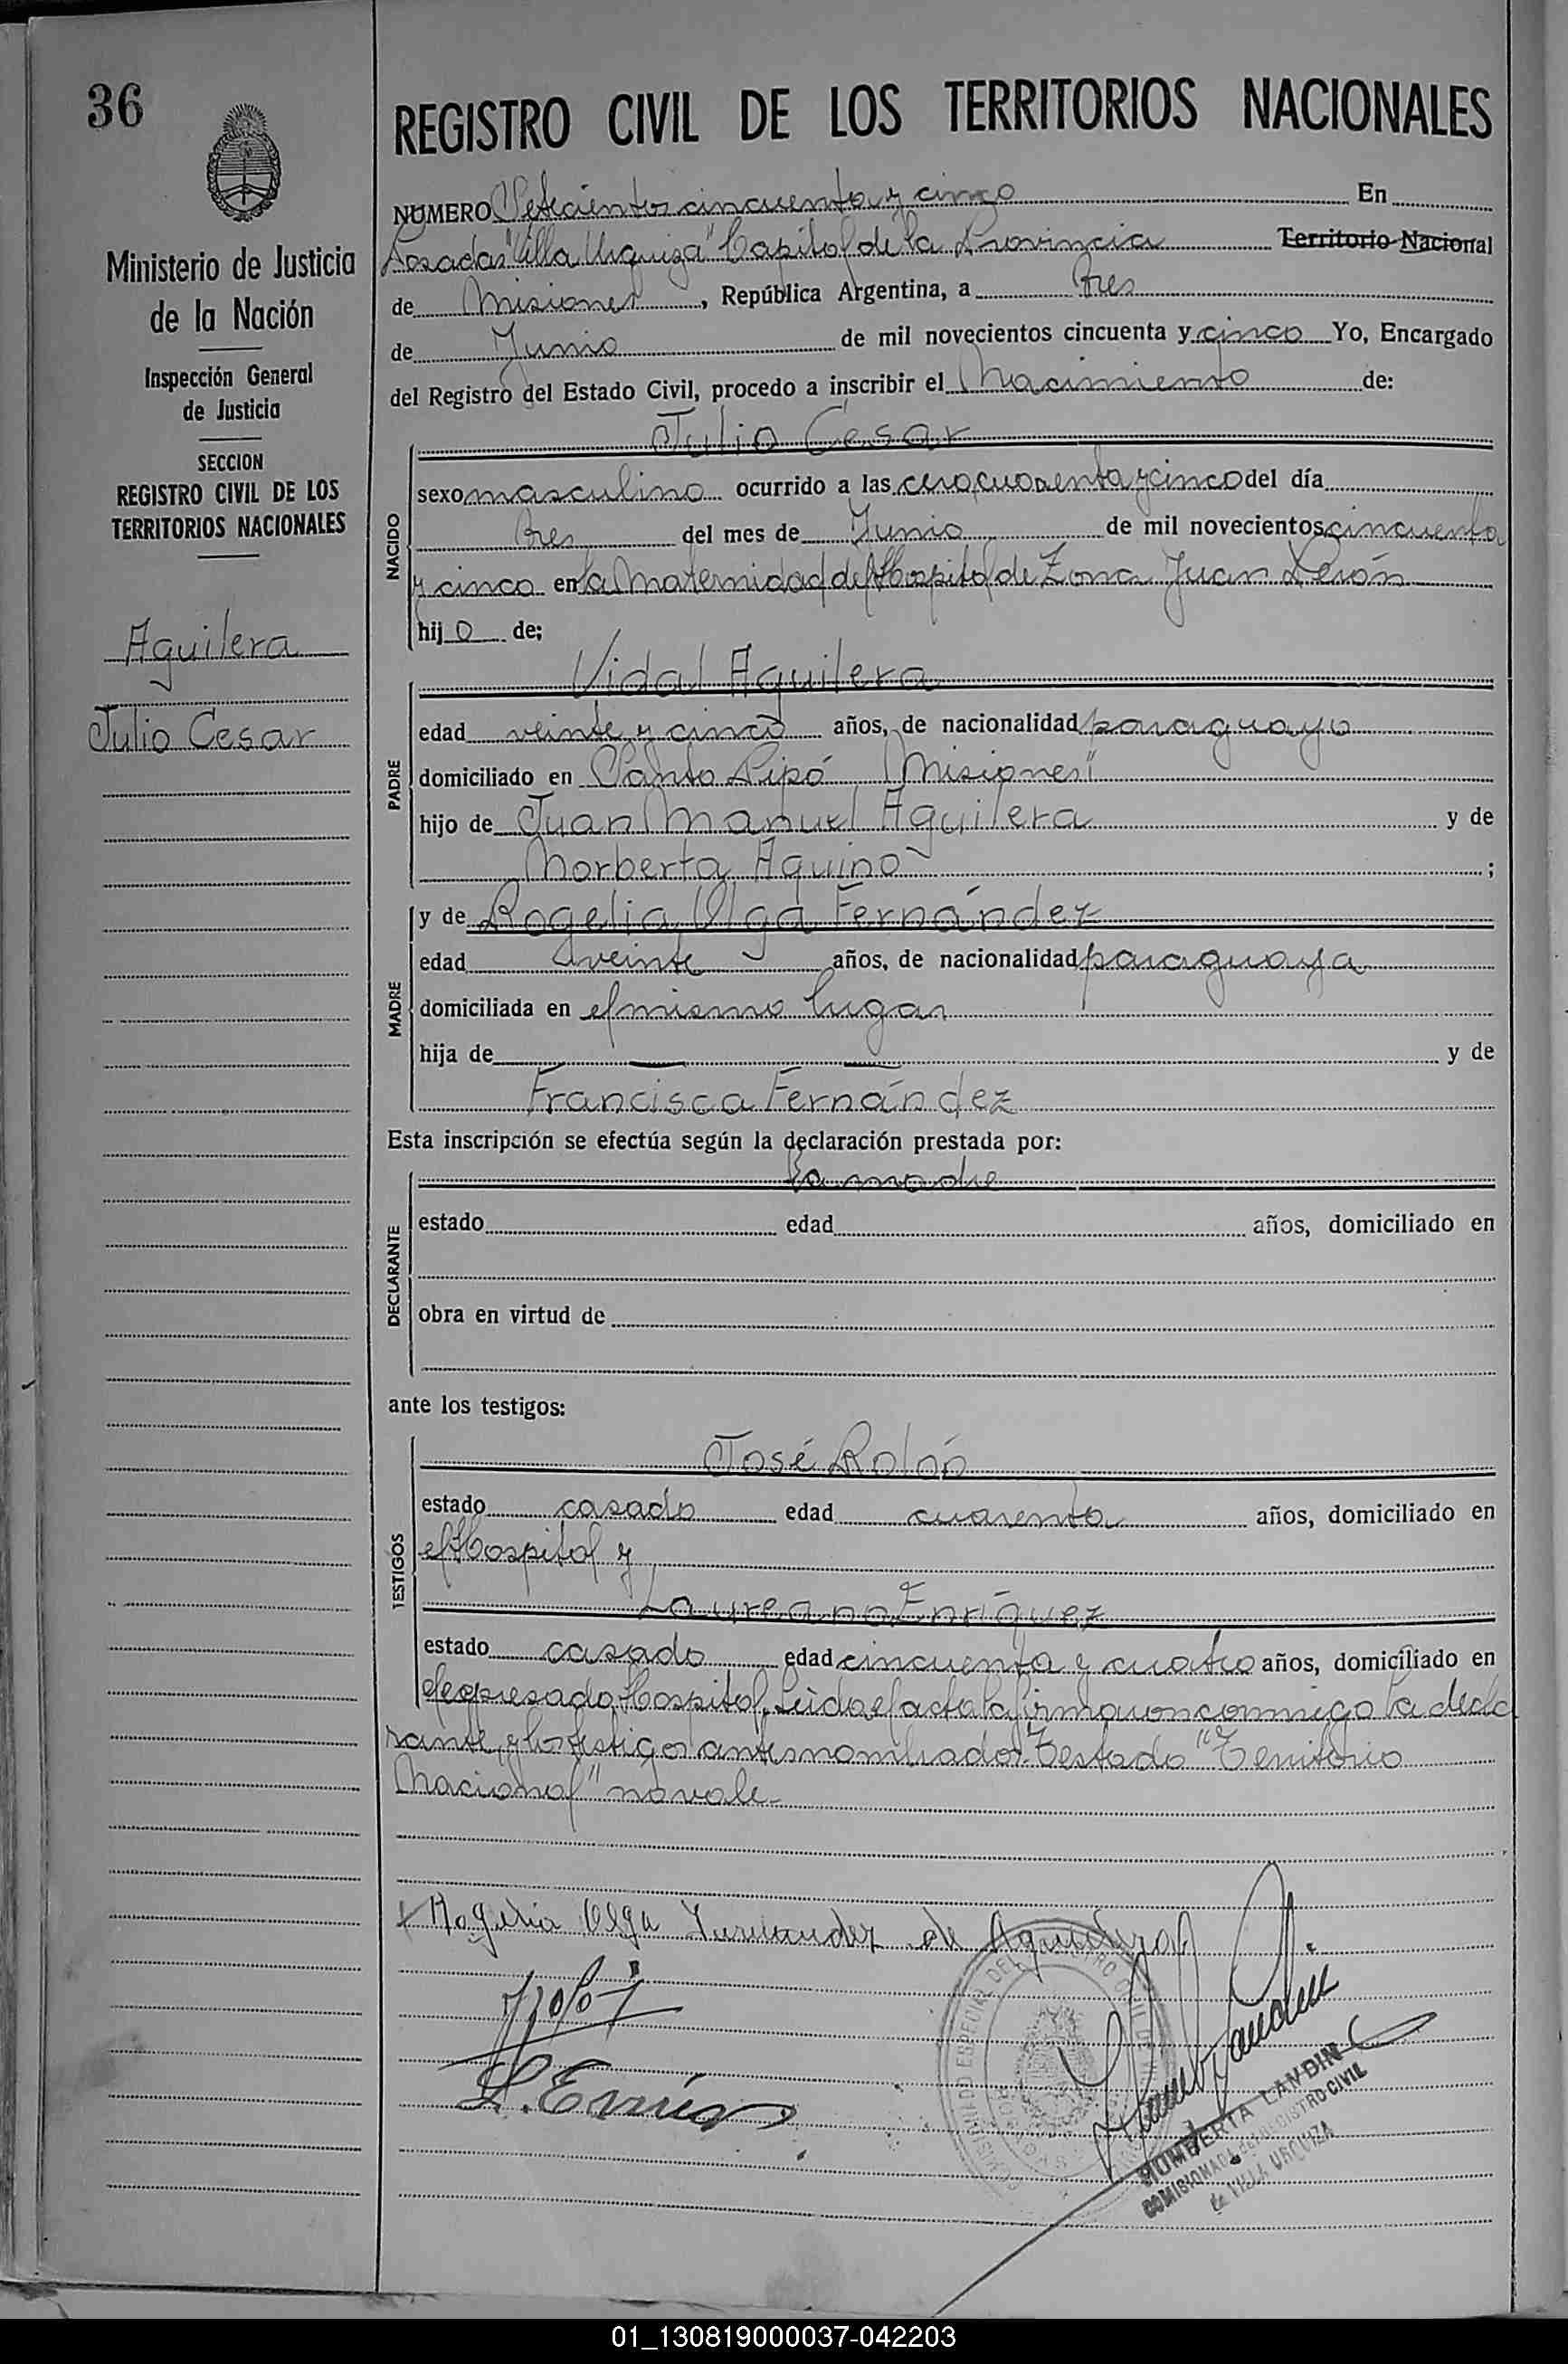 36
Ministerio de Justicia
de la Nación
Inspección General
de Justicia
SECCION
REGISTRO CIVIL DE LOS
TERRITORIOS NACIONALES
Aguilera
Julio Cesar
REGISTRO CIVIL DE LOS TERRITORIOS NACIONALES
NUMERO Setecientos cincuenta y cinco En
Posadas "Villa Urquiza" Capital de la Provincia Territorio Nacional
de Misiones, República Argentina, a Tres
de Junio de mil novecientos cincuenta y cinco Yo, Encargado
del Registro del Estado Civil, procedo a inscribir el Nacimiento de:
Julio César
NACIDO
sexo masculino ocurrido a las cero cuarenta y cinco del día
Tres del mes de Junio de mil novecientos cincuenta
y cinco en la Maternidad del Hospital de Zona Juan Perón
hijo de;
Vidal Aguilera
PADRE
edad veinte y cinco años, de nacionalidad paraguayo
domiciliado en Santo Pipó Misiones"
hijo de Juan Manuel Aguilera y de
Norberta Aquino ;
MADRE
y de Rogelia Olga Fernández
edad veinte años, de nacionalidad paraguaya
domiciliada en el mismo lugar
hija de — — y de
Francisca Fernández
Esta inscripción se efectúa según la declaración prestada por:
la madre
DECLARANTE
estado edad años, domiciliado en
obra en virtud de
ante los testigos:
José Rolón
TESTIGOS
estado casado edad cuarenta años, domiciliado en
el Hospital y
Laureano Enríquez
estado casado edad cincuenta y cuatro años, domiciliado en
el expresado Hospital. Leida el acta la firmaron conmigo la decla
rante, y los testigos antes nombrados. Testado "Territorio
Nacional" no vale.-
Rogelia Olga Fernandez de Aguilera
L. Enríq
HUMBERTA LANDIN
COMISIONADA del REGISTRO CIVIL
de VILLA URQUIZA
01_130819000037-042203